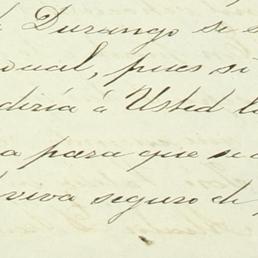 Durango se s
cual, pues si
diria á Usted la
a para que se
viva seguro de